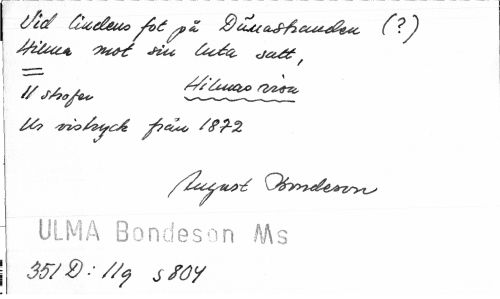 Vid lindens fot på Dünastranden (?)
Hilma mot sin luta satt,
11 strofer Hilmas visa
Ur vistryck från 1872
August Bondeson
ULMA Bondeson Ms
351 D: 11g s 804